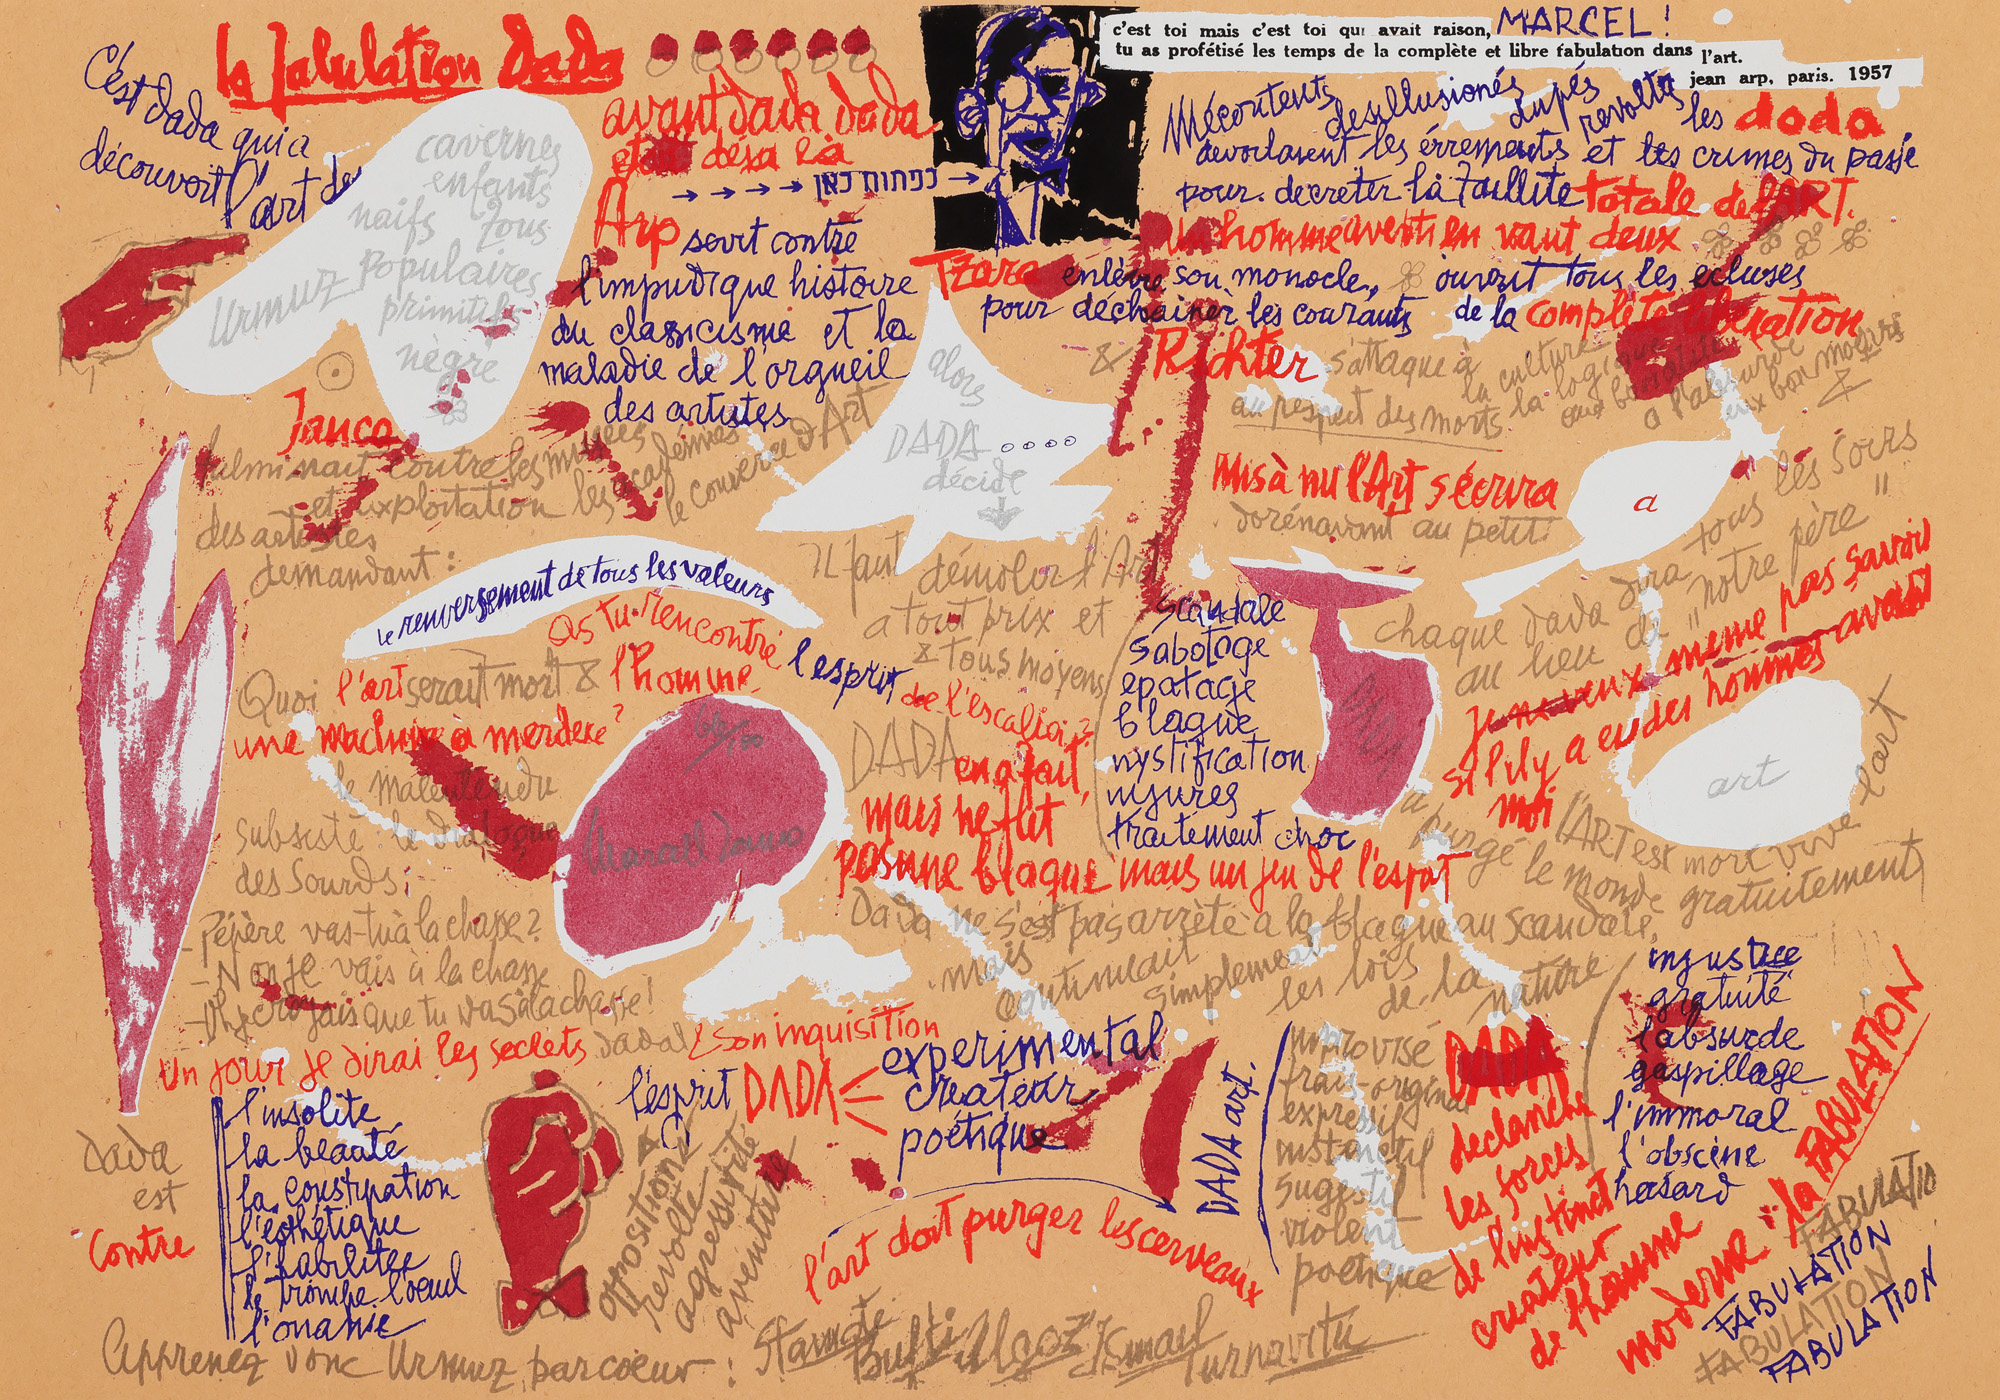 la fabulation dada
C'est dada qui a
découvert l'art des
cavernes
enfants
naifs fous
Populaires
Urmuz
primitifs
nègre
avant dada dada
était déja là
→ → → → כפחות כאן →
c'est toi mais c'est toi qui avait raison, MARCEL !
tu as profétisé les temps de la complète et libre fabulation dans l'art.
jean arp, paris. 1957
Mécontents desillusionés dupés revoltés les dada
devoilaient les érrements et les crimes du passé
pour decreter la faillite totale de l'ART.
un homme averti en vaut deux
Arp sevit contre
l'impudique histoire
du classicisme et la
maladie de l'orgueil
des artistes
Tzara enlève son monocle, ouvrit tous les écluses
pour déchainer les courants de la complète libération
& Richter s'attaque à
la culture
au respect des morts la logique
a l'absurde
aux bon moeurs
&
Janco
fulminait contre les musées
les académies
le couvercle d'Art
et exploitation
des artistes
demandant :
alors
DADA ....
décide
Misà nu l'Art s'écrira
dorénavant au petit:
a
Il faut démolir l'Art
a tout prix et
& tous moyens
le renversement de tous les valeurs
As tu rencontré l'esprit de l'escalier?
Quoi l'art serait mort & l'homme
une machine a merdere?
le malentendu
subsiste le dialogue
des sourds:
-Pépère vas-tu à la chasse?
-Non je vais à la chasse
-Ah je croyais que tu vas à la chasse!
Marcel Janco
scandale
sabotage
epatage
blague
mystification
injures
traitement choc
chaque dada dira tous les soirs
au lieu de "notre père"
je ne veux meme pas savoir
si l'il y a eu des hommes avant
moi
art
l'ART est mort vive l'art
DADA en a fait,
mais ne fut
pas une blague mais un jeu de l'esprit
a purgé le monde gratuitement
Dada ne s'est pas arrèté a la blague au scandale,
mais continuait simplement les lois de la nature
Un jour je dirai les secrets dada & son inquisition
dada
est
Contre
l'insolite
la beauté
la constipation
l'esthétique
l'habilitée
le trompe l'oeuil
l'onanie
l'esprit DADA
experimental
createur
poétique
opposition
revolte
agressivité
aventure
l'art doit purger les cerveaux
DADA art.
improvisé
frais-original
expressif
instanctif
suggestif
violent
poétique
DADA
declanche
les forces
de l'instinct
createur
de l'homme
moderne · la FABULATION
injustice
gratuité
l'absurde
gaspillage
l'immoral
l'obscène
hasard
FABULATIO
FABULATION
FABULATION
FABULATION
apprenez donc Urmuz par coeur : Stamate Ismail Turnavitu